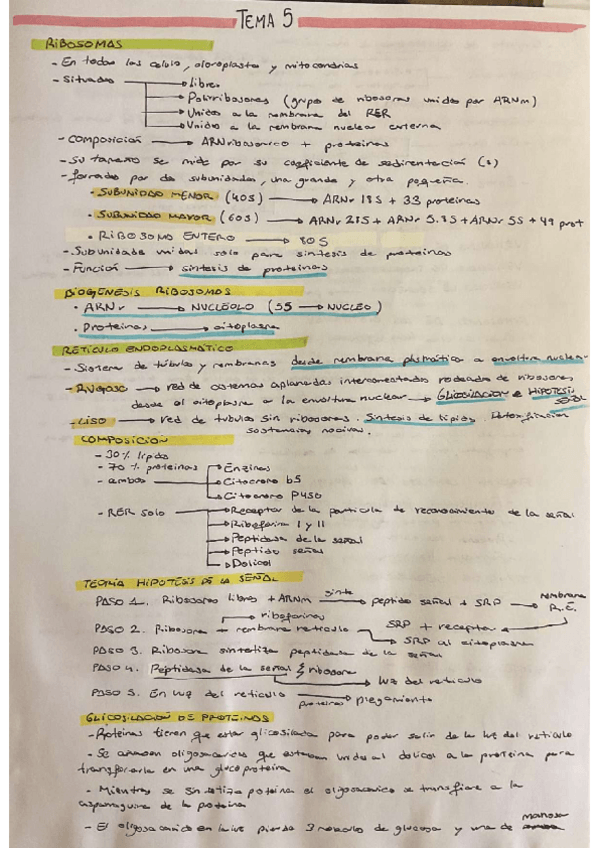 TEMA 5
RIBOSOMAS
- En todas las celula, cloroplastos y mitocondrias
- Situados → libres
→ Polirribosomas (grupo de ribosomas unidos por ARNm)
→ Unidos a la membrana del RER
→ Unidos a la membrana nuclear externa
- Composición → ARNribosomico + proteinas
- Su tamaño se mide por su coeficiente de sedimentación (s)
- formados por dos subunidades, una grande y otra pequeña.
• SUBUNIDAD MENOR (40S) → ARNr 18S + 33 proteinas
• SUBUNIDAD MAYOR (60S) → ARNr 28S + ARNr 5.8S + ARNr 5S + 49 prot
• RIBOSOMA ENTERO → 80S
- Subunidades unidas solo para sintesis de proteinas
- Función → sintesis de proteinas
BIOGENESIS RIBOSOMAS
• ARNr → NUCLÉOLO (5S → NUCLEO)
• Proteinas → citoplasma
RETICULO ENDOPLASMÁTICO
- Sistema de túbulos y membranas desde membrana plasmática a envoltura nuclear
- RUGOSO → red de cisternas aplanadas interconectadas rodeada de ribosomas
desde el citoplasma a la envoltura nuclear → GLICOSILACION e HIPOTESIS
SEÑAL
- LISO → red de tubulos sin ribosomas. Sintesis de lipidos. Detoxificacion
sustancias nocivas.
COMPOSICION
- 30% lipidos
- 70% proteinas → Enzimas
- ambos → Citocromo b5
→ Citocromo P450
- RER solo → Receptor de la particula de reconocimiento de la señal
→ Riboforina I y II
→ Peptidasa de la señal
→ Peptido señal
→ Dolicol
TEORIA HIPÓTESIS DE LA SEÑAL
PASO 1. Ribosomas libres + ARNm sinte → peptido señal + SRP → membrana R.E.
→ riboforinas
PASO 2. Ribosoma - membrana reticulo SRP + receptor
→ SRP al citoplasma
PASO 3. Ribosoma sintetiza peptidasa de la señal
PASO 4. Peptidasa de la señal ribosoma
→ luz del reticulo
PASO 5. En luz del reticulo proteinas → plegamiento
GLICOSILACIÓN DE PROTEINAS
- Proteinas tienen que estar glicosiladas para poder salir de la luz del reticulo
- Se anexan oligosacaridos que estaban unidos al dolicol a la proteina para
transformarla en una glucoproteina
- Mientras se sintetiza proteina el oligosacarido se transfiere a la
asparaguina de la proteina
- El oligosacarido en la luz pierde 3 moleculas de glucosa y una de manosa